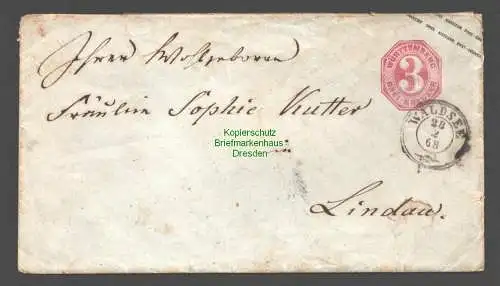 Ihrer Wohlgeboren
WÜRTTEMBERG
3
DREI KREUZER
Fräulein Sophie Kutter
WALDSEE
28
2
68
Kopierschutz
Briefmarkenhaus
Dresden
in
Lindau.